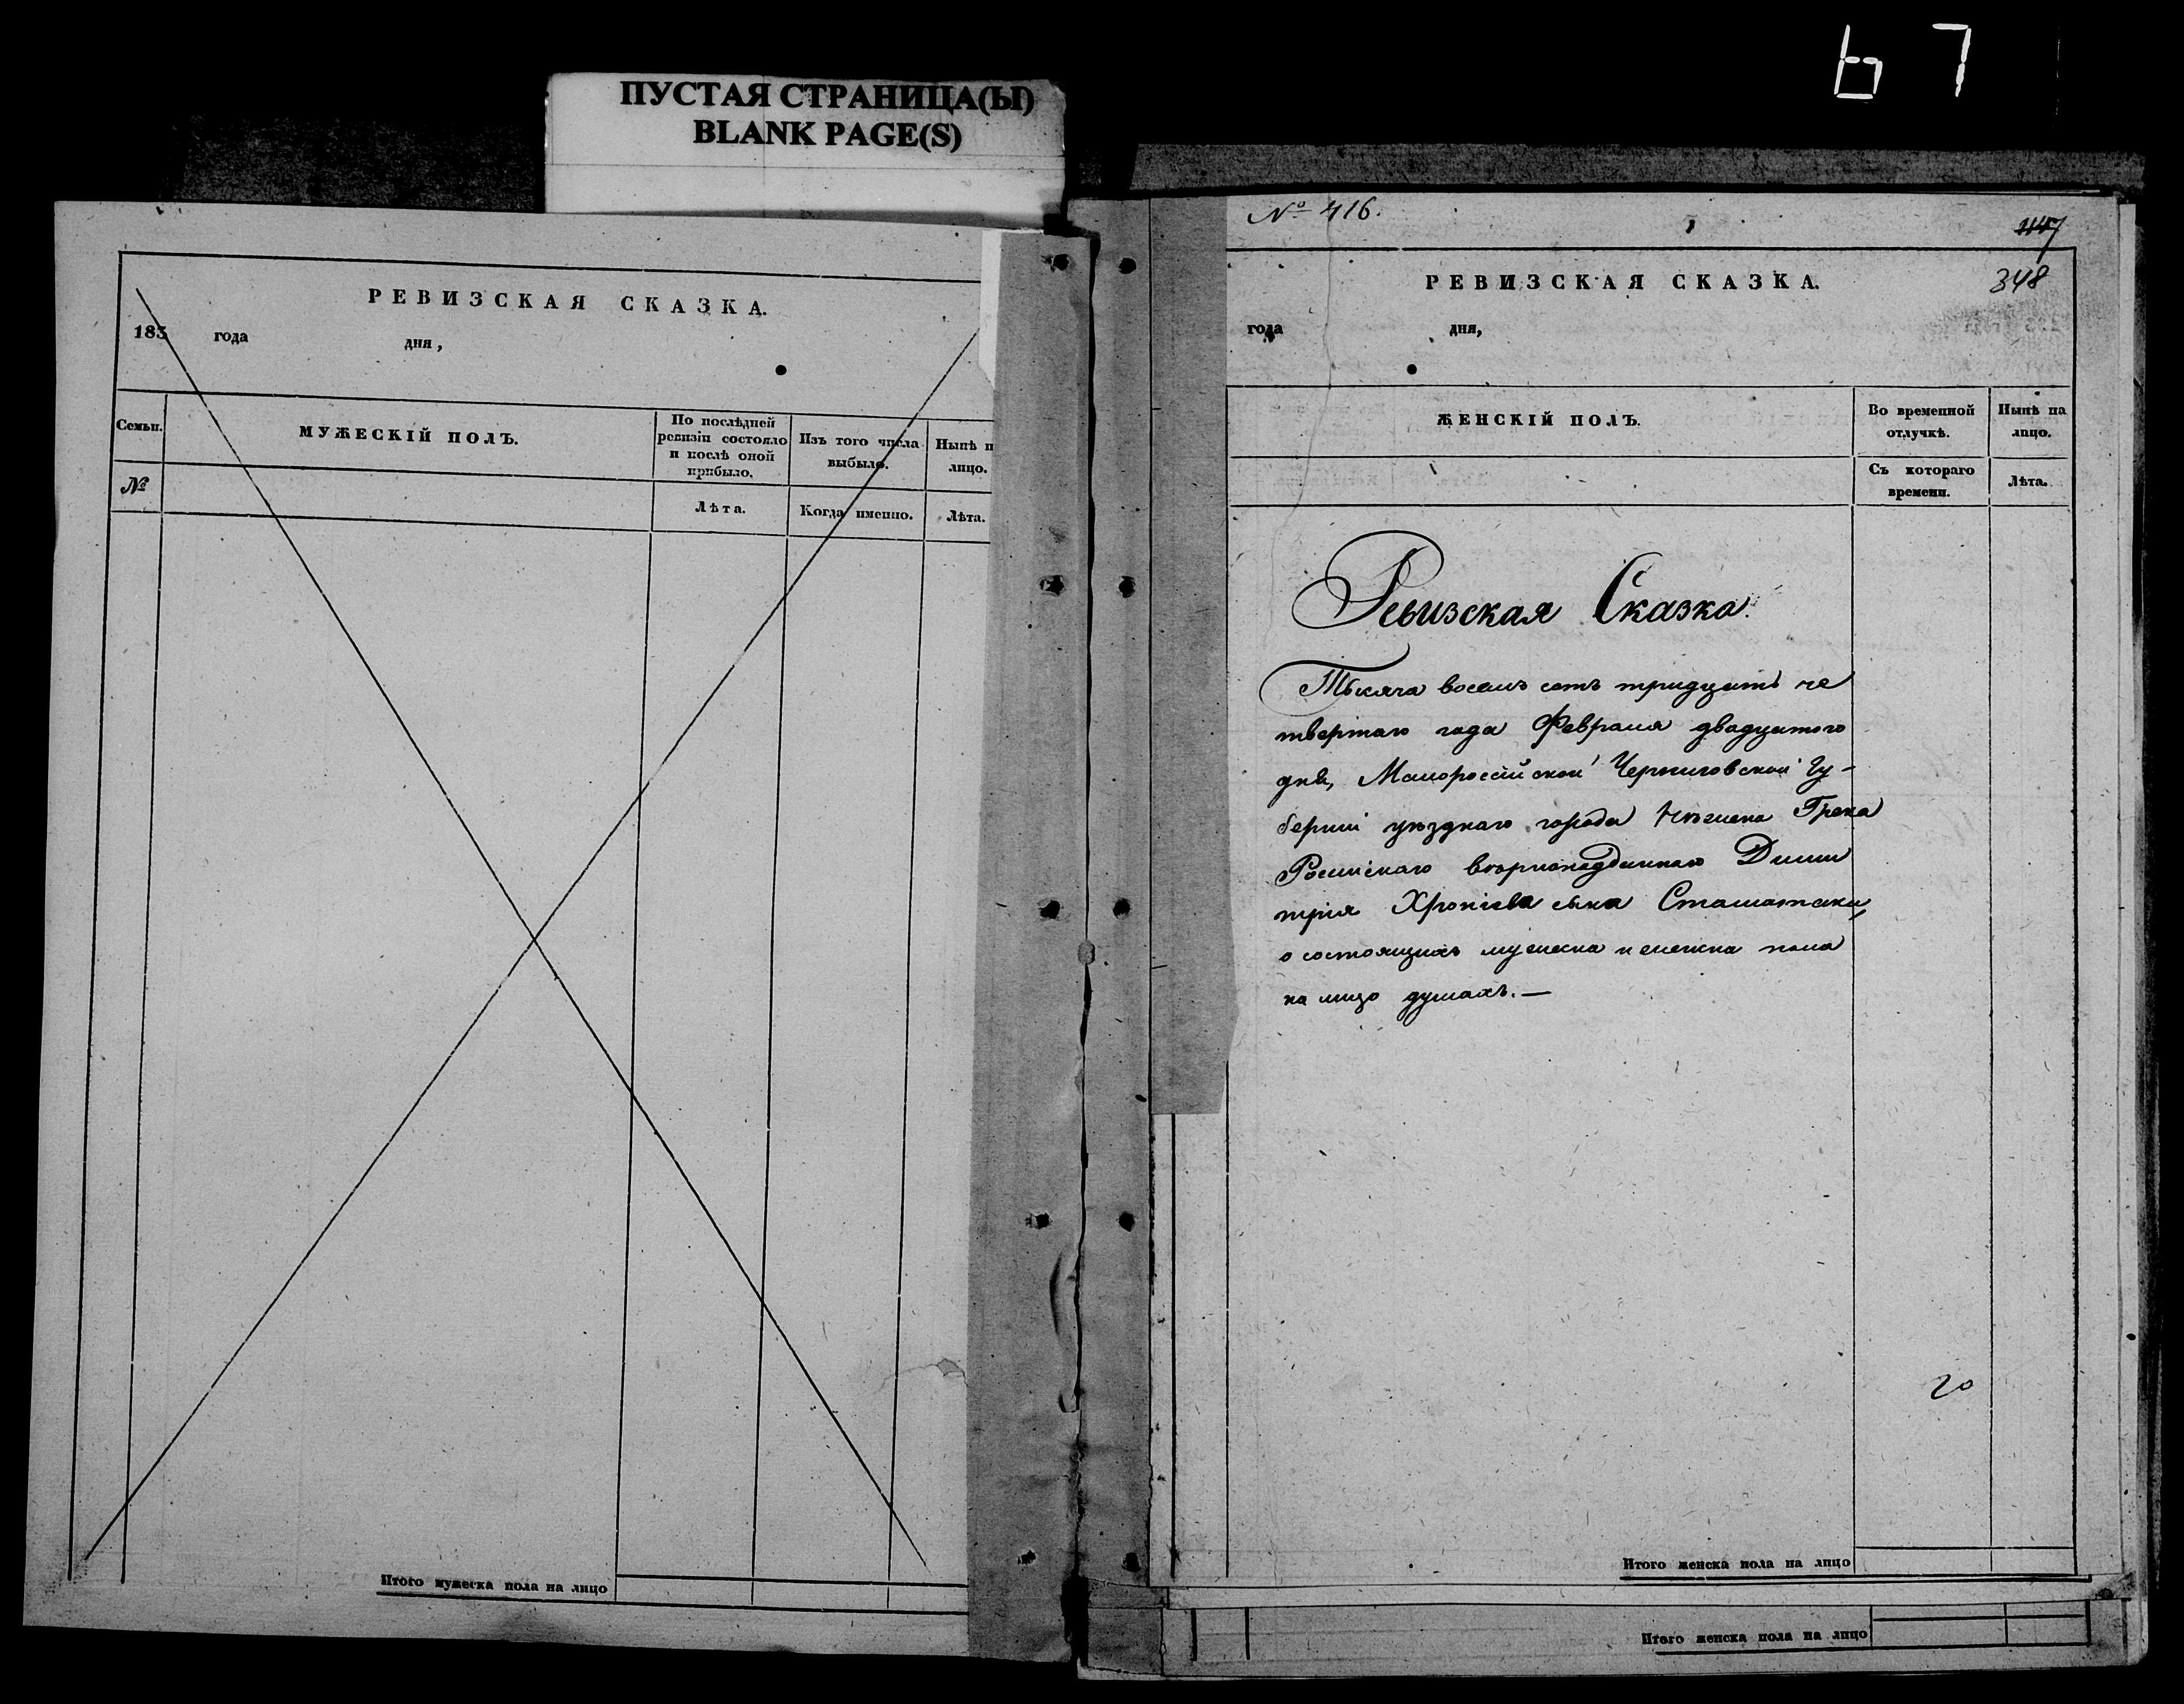 67
ПУСТАЯ СТРАНИЦА(Ы)
BLANK PAGE(S)
РЕВИЗСКАЯ СКАЗКА.
183 года дня,
Семьи. МУЖЕСКІЙ ПОЛЪ. По послѣдней ревизіи состояло и послѣ оной прибыло. Изъ того числа выбыло. Нынѣ н лицо.
№ Лѣта. Когда именно. Лѣта.
Итого мужеска пола на лицо
№ 416.
348
РЕВИЗСКАЯ СКАЗКА.
года дня,
ЖЕНСКІЙ ПОЛЪ. Во временной отлучкѣ. Нынѣ на лицо.
Съ котораго времени. Лѣта.
Ревизская Сказка.
Тысяча восемь сотъ тридцать че
твертаго года Февраля двадцатого
дня, Малороссійской Черниговской Гу-
берніи уѣзднаго города Нѣжина Грека
Россійскаго вѣрноподданнаго Дими
трія Хропіева сына Стаматаки,
о состоящихъ мужеска и женска пола
на лицо душахъ.—
20
Итого женска пола на лицо
Итого женска пола на лицо